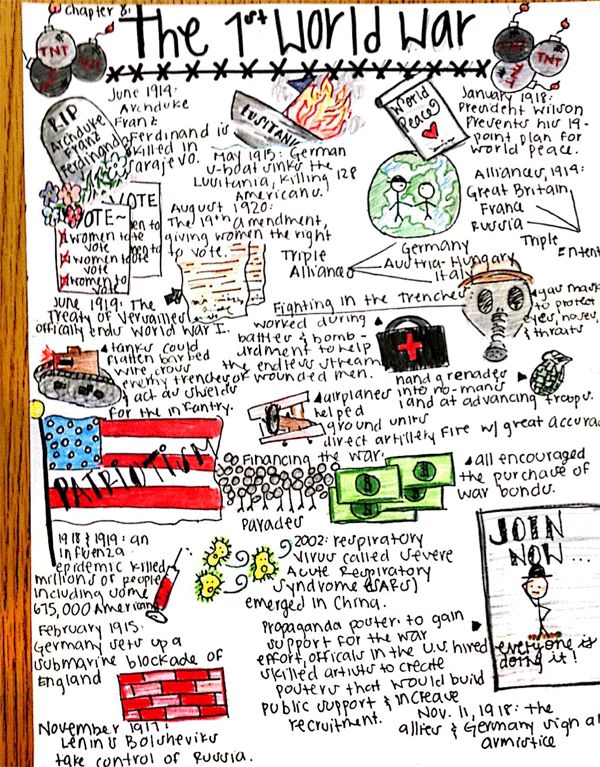 chapter 8:
The 1st World War
TNT
TNT
RIP
Archduke
Franz
Ferdinand
June 1914:
Archduke
Franz
Ferdinand is
killed in
Sarajevo.
LUSITANIA
May 1915: German
U-boat sinks the
Lusitania, killing 128
Americans.
World
Peace
January 1918:
President Wilson
Presents his 14-
point plan for
world peace.
VOTE
VOTE~
women to
vote
women to
vote
women to
vote
August 1920:
The 19th Amendment,
giving women the right
to vote.
Alliances, 1914:
Great Britain,
France
Russia
Triple
Entent
Triple
Alliance
Germany
Austria-Hungary
Italy
June 1919: The
Treaty of Versailles
offically ends World War I.
Fighting in the trenches
gas mask
to protect
eyes, noses,
& throats
worked during
battles & bomb-
ardment to help
the endless stream
of wounded men.
tanks could
flatten barbed
wire, cross
enemy trenches
& act as shields
for the infantry.
hand grenades
into no-mans
land at advancing troops.
airplanes
helped
ground units
direct artillery fire w/ great accurac
PATRIOTISM
Financing the war:
Parades
all encouraged
the purchase of
war bonds.
JOIN
NOW...
everyone is
doing it!
1918 & 1919: an
influenza
epidemic killed
millions of people
including some
675,000 American
2002: respiratory
virus called Severe
Acute Respiratory
Syndrome (SARS)
emerged in China.
February 1915:
Germany sets up a
submarine blockade of
England
Propaganda poster: to gain
support for the war
effort, officals in the U.S. hired
skilled artists to create
posters that would build
public support & increase
recruitment.
November 1917:
Lenin's Bolsheviks
take control of Russia.
Nov. 11, 1918: the
allies & Germany sign a
armistice